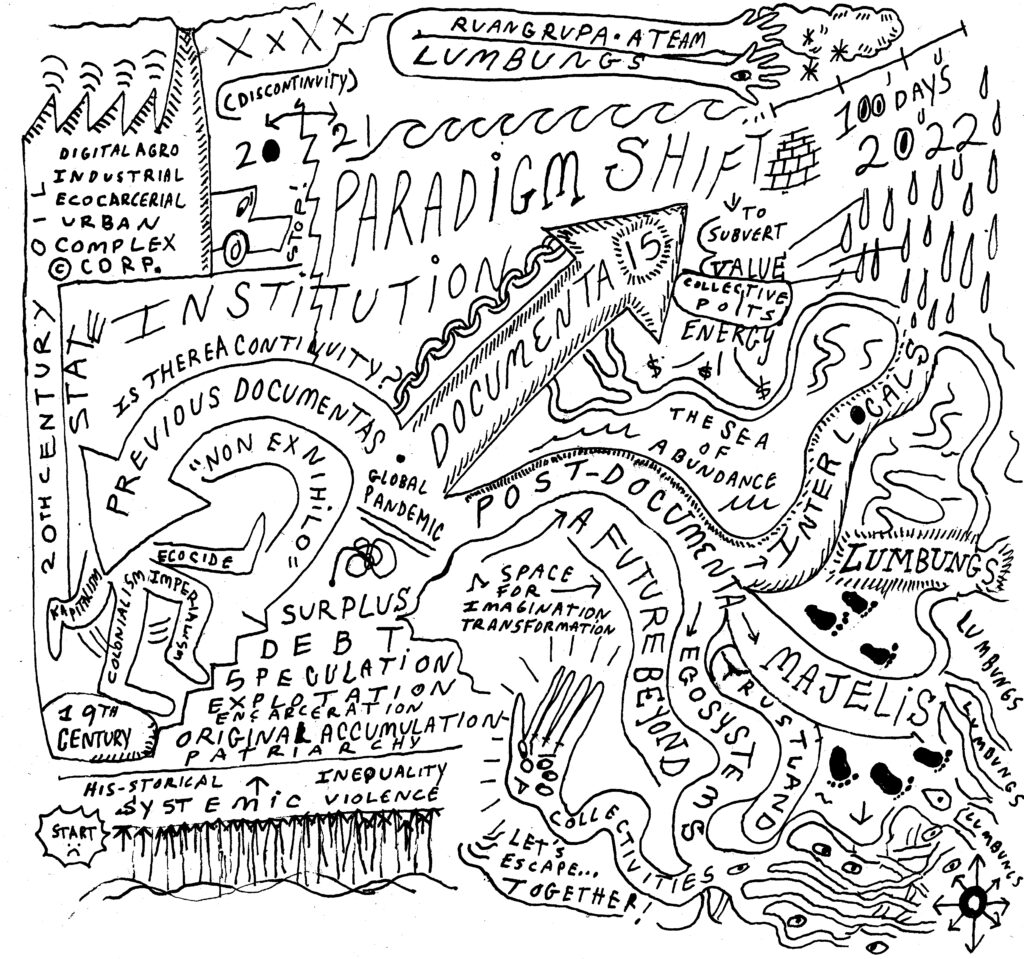 RUANGRUPA • A TEAM
LUMBUNGS
(DISCONTINUITY)
20
21
100 DAYS
2022
DIGITAL AGRO
INDUSTRIAL
ECOCARCERIAL
URBAN
COMPLEX
© CORP.
OIL
STOP!
PARADIGM SHIFT
TO
SUBVERT
VALUE
COLLECTIVE
POTS
ENERGY
$ $! $
INSTITUTION
20TH CENTURY
STATE
IS THERE A CONTINUITY?
PREVIOUS DOCUMENTAS
"NON EX NIHILO"
DOCUMENTA 15
GLOBAL
PANDEMIC
THE SEA
OF
ABUNDANCE
POST-DOCUMENTA
INTERLOCALS
LUMBUNGS
ECOCIDE
KAPITALISM
COLONIALISM
IMPERIALISM
19TH
CENTURY
SURPLUS
DEBT
SPECULATION
EXPLOTATION
ENCARCERATION
ORIGINAL ACCUMULATION
PATRIARCHY
SPACE
FOR
IMAGINATION
TRANSFORMATION
A FUTURE BEYOND
EGOSYSTEMS
TRUSTLAND
MAJELIS
LUMBUNGS
LUMBUNGS
LUMBUNGS
HIS-STORICAL INEQUALITY
SYSTEMIC VIOLENCE
START
COLLECTIVITIES
LET'S
ESCAPE...
TOGETHER!